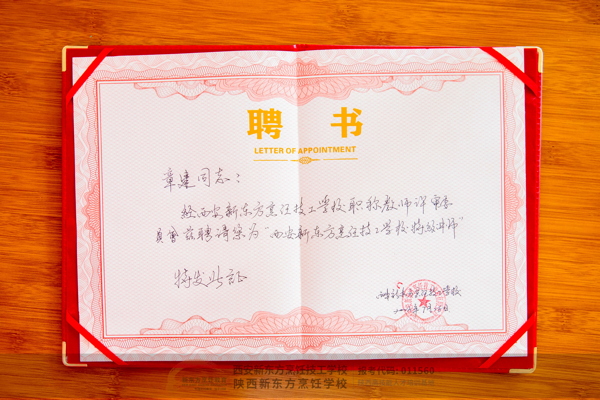 聘 书
LETTER OF APPOINTMENT
章建同志：
经西安新东方烹饪技工学校职称教师评审委
员会兹聘请您为“西安新东方烹饪技工学校特级讲师”
特发此证
西安新东方烹饪技工学校
西安新东方烹饪技工学校 招考代码: 011568
陕西新东方烹饪学校